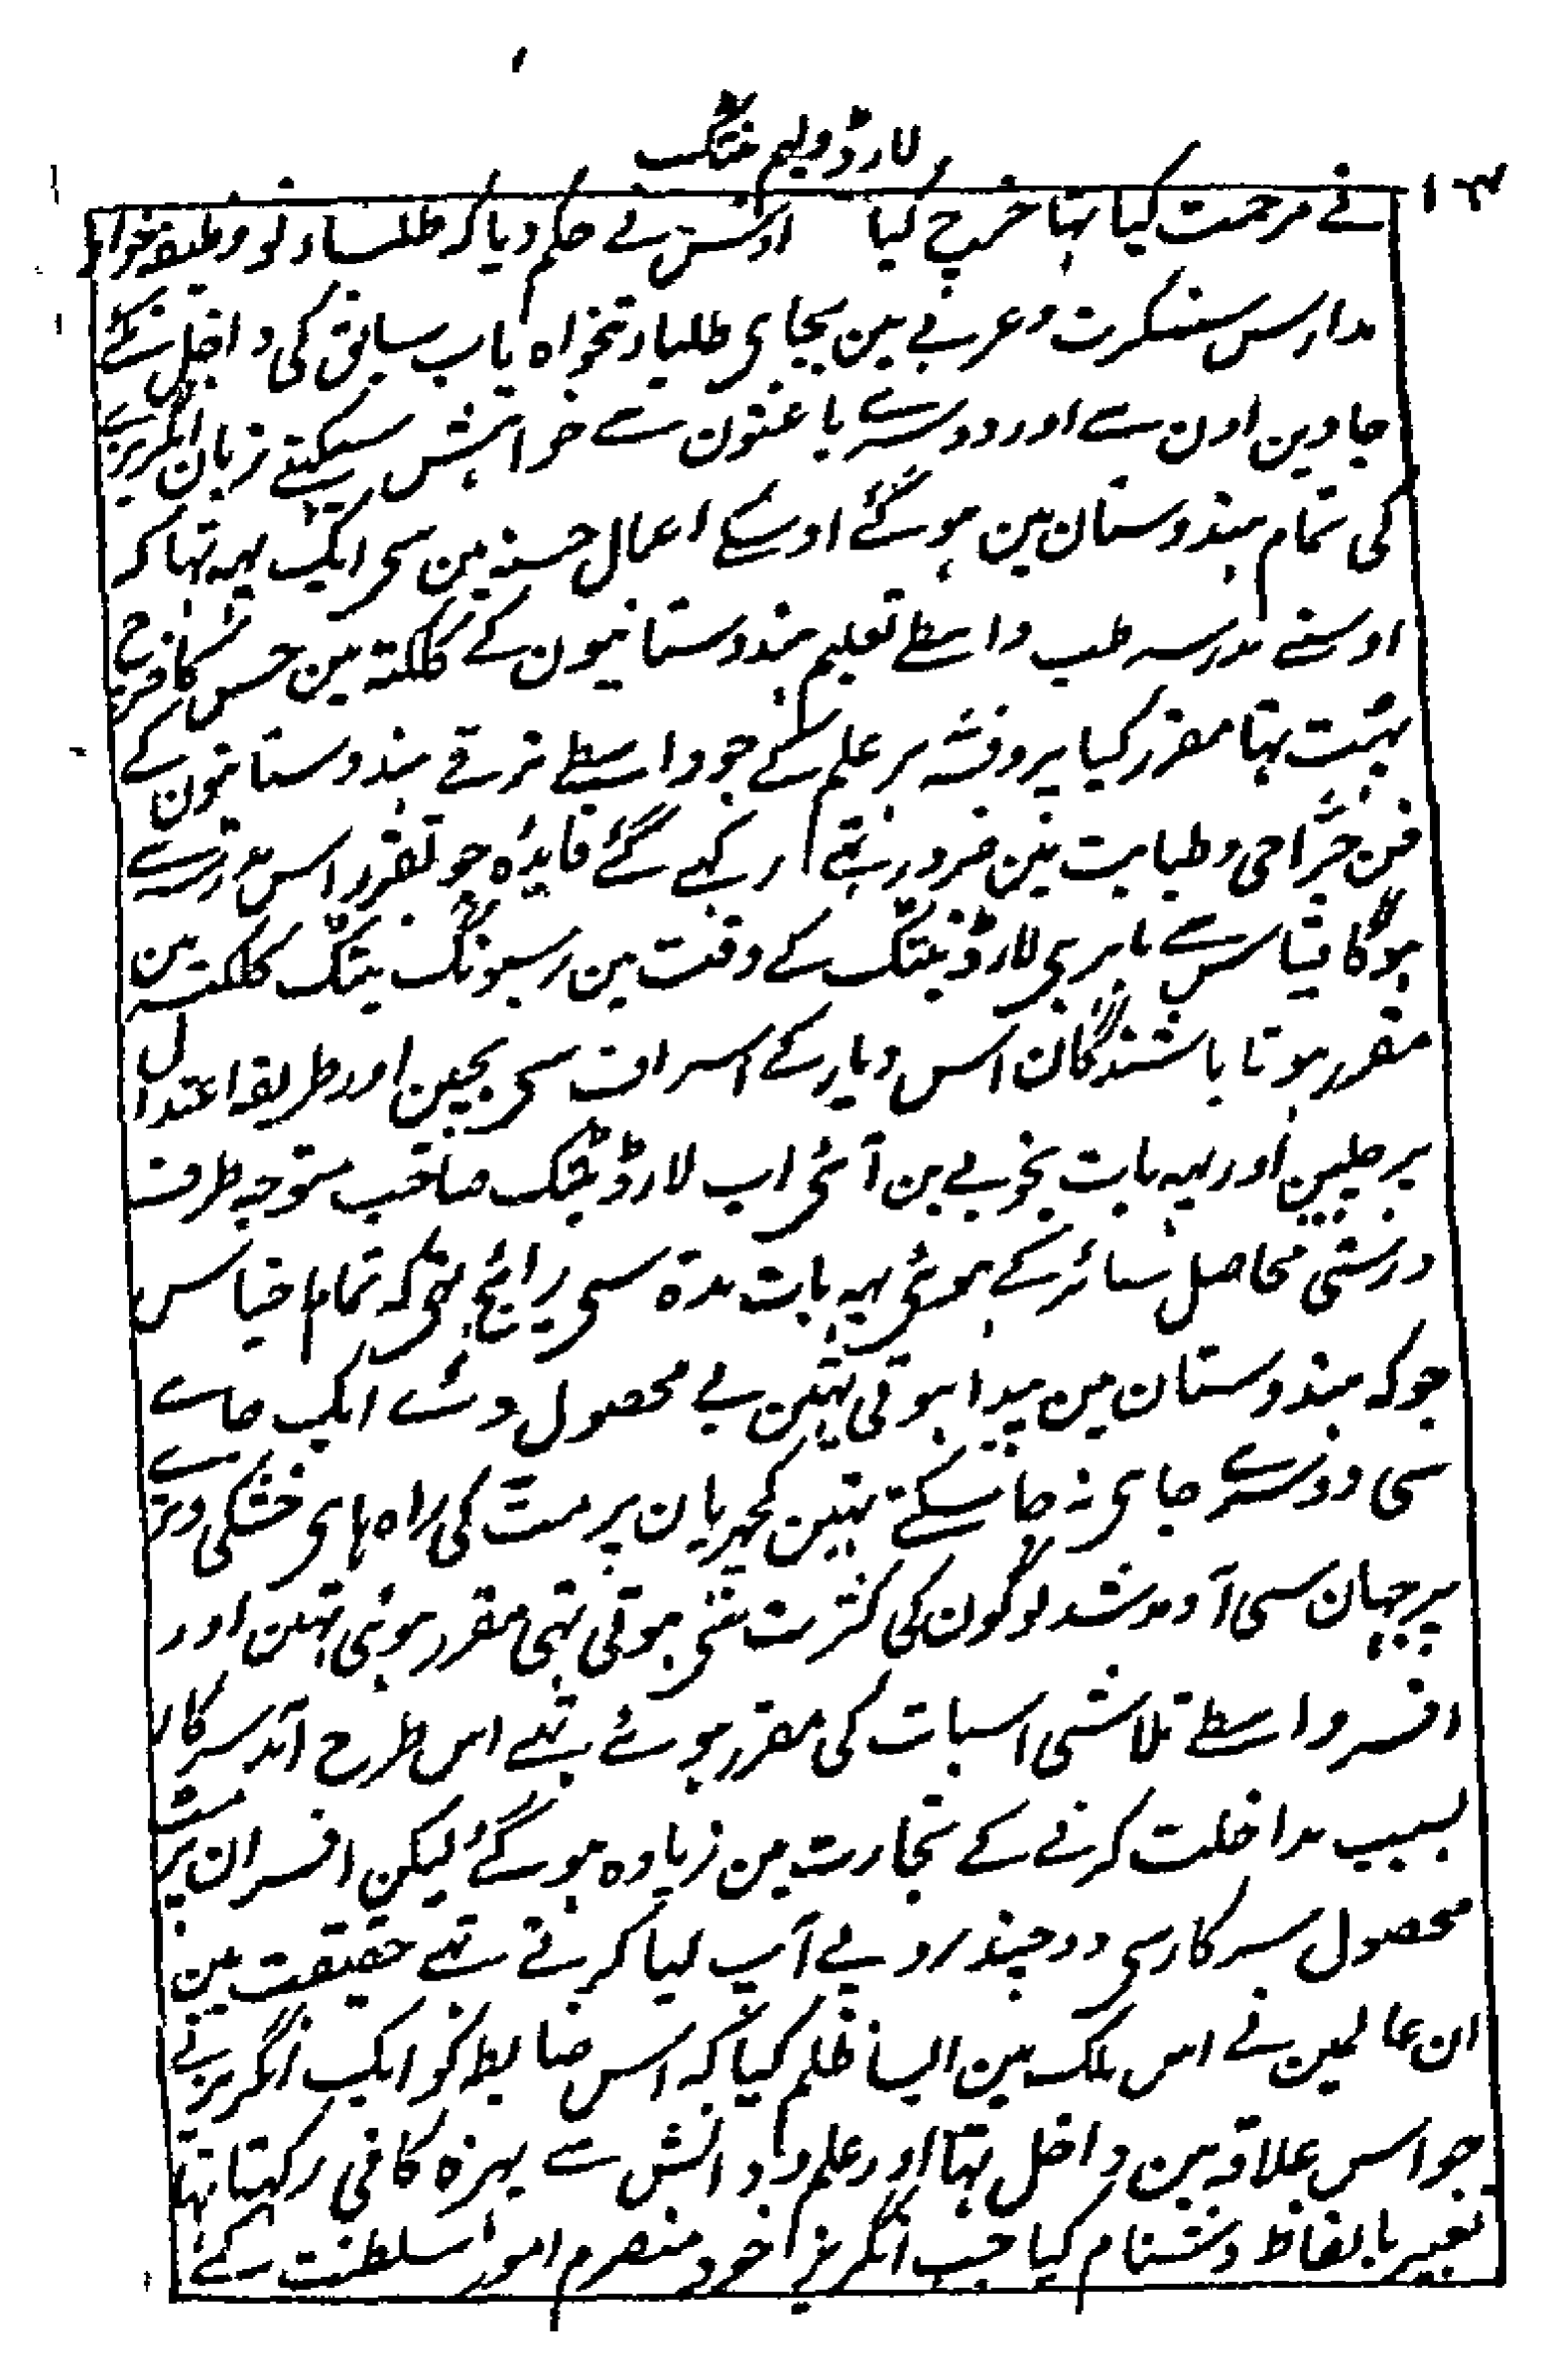 لارڈ ولیم بنٹنگ
۱۳۴
نے مرحمت کیا تہا خرچ کیا اوسنے حکم دیا کہ طلباء نو وظیفہ خوار
مدارس سنسکرت و عربی مین بجای طلباء تنخواہ یاب سابق کی داخل نکئے
جاوین اون سے اور دوسرے باعثون سے خواہش سیکہنے زبان انگریزی
کی تمام ہندوستان مین ہوگئے اوسکے اعمال حسنہ مین سی ایک یہہ تہا کہ
اوسنے مدرسہ طب واسطے تعلیم ہندوستانیون کے کلکتہ مین جس کا خرچ
بہت تہا مقرر کیا پروفسر ہر علم کے جو واسطے ترقے ہندوستانیون کے
فن جرّاحی و طبابت مین ضرور تہے رکہے گئے فایدہ جو تقرر اس مدرسے
ہوگا قیاس سے باہر ہی لارڈ بنٹنگ کے وقت مین سیونگ بنک کلکتہ مین
مقرر ہوتا باشندگان اس دیار کے اسراف سی بچین اور طریقہ اعتدال
پر چلین اور یہہ بات بخوبے بن آئی اب لارڈ بنٹنگ صاحب متوجہ طرف
درستی محاصل سائر کے ہوئی یہہ بات مدۃ سی رایج تہی کہ تمام اجناس
جو کہ ہندوستان مین پیدا ہوتی تہین بے محصول دئے ایک جاے
سی دوسرے جای نہ جا سکتے تہین کچہریان پرمت کی راہ ہای خشکی و تری
پر جہان سی آمد و شد لوگون کی کثرت سی ہوتی تہی مقرر ہوئی تہین اور
افسر واسطے تلاشی اسباب کی مقرر ہوئے تہے اس طرح آمد سرکار
بسبب مداخلت کرنے کے تجارت مین زیادہ ہوگئے لیکن افسران پرمٹ
محصول سرکار سی دوچند روپے آپ لیا کرتے تہے حقیقت مین
ان عالمین نے اس ملک مین ایسا ظلم کیا کہ اس ضابطہ کو ایک انگریز نے
جو اس علاقہ مین داخل تہا اور علم و دانش سے بہرہ کافی رکہتا تہا
تعبیر بالفاظ دشنام کیا جب انگریز خود منصرم امور سلطنت کے